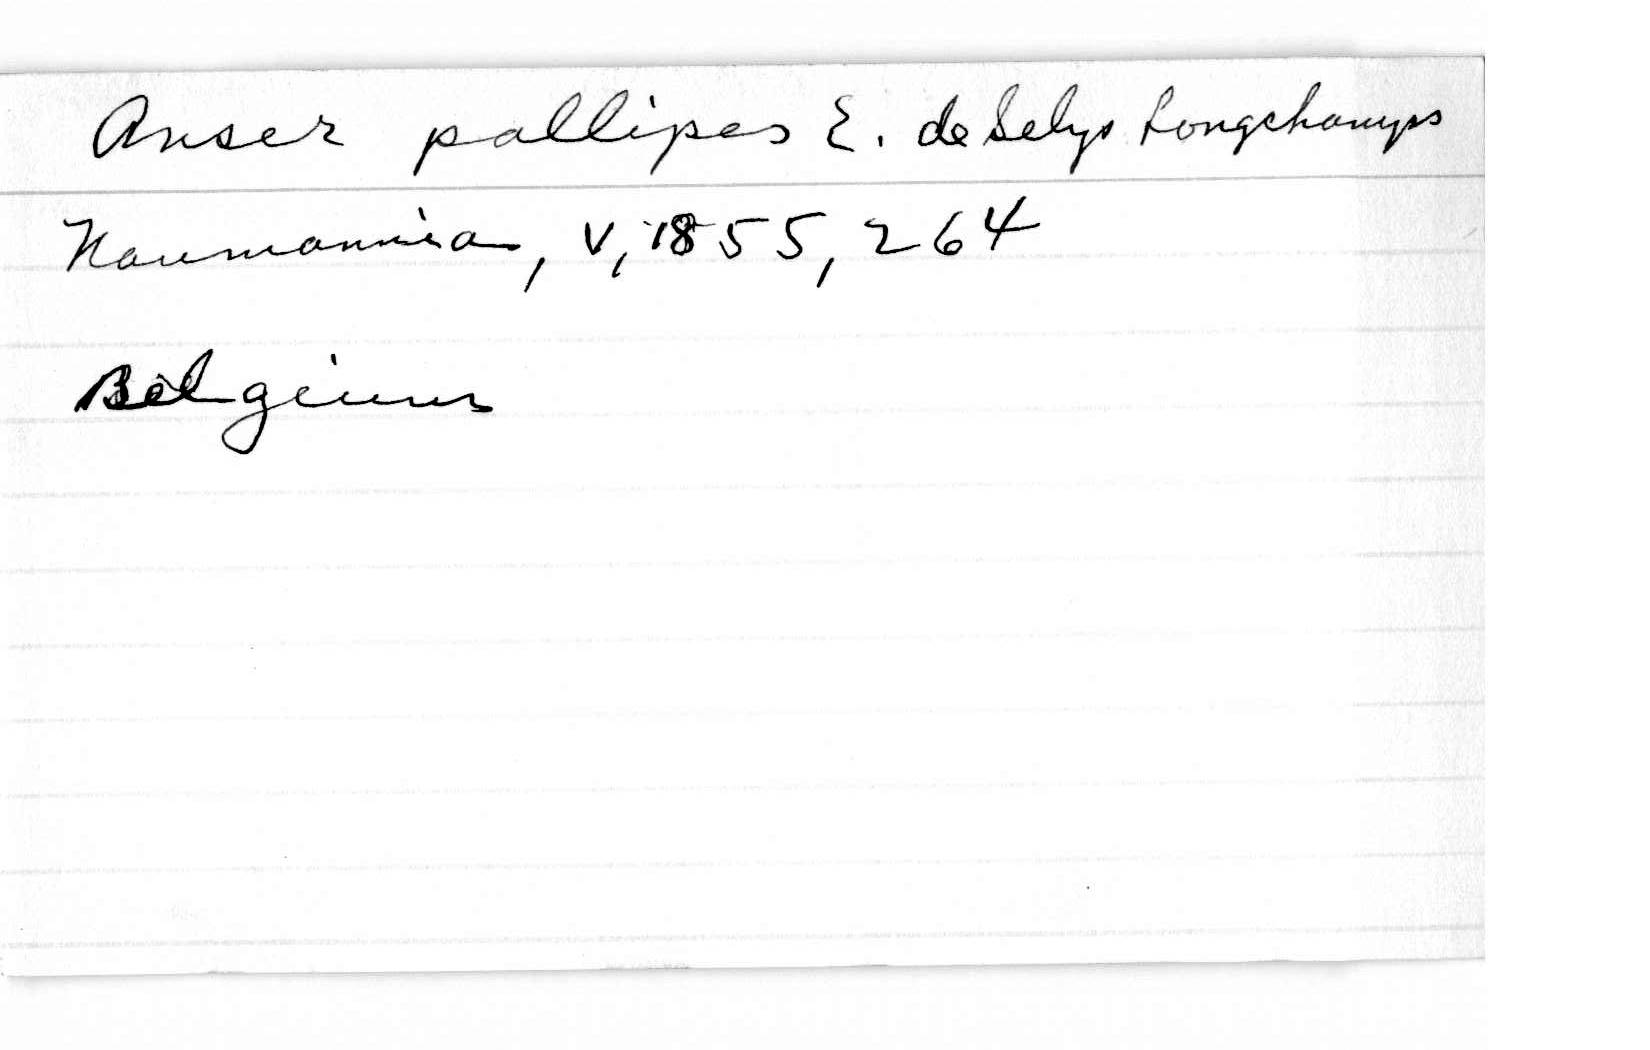 Anser pallipes E. de Selys Longchamps
Naumannia, V, 1855, 264
Belgium